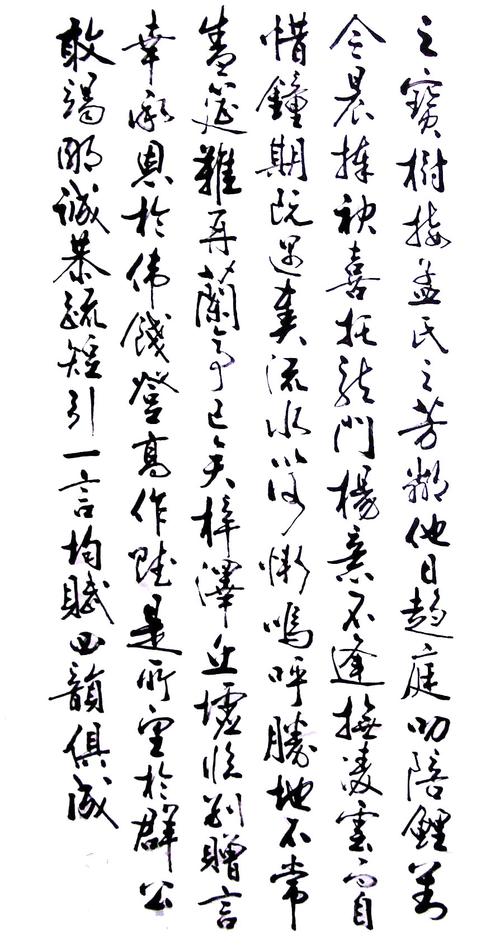 之寶樹接孟氏之芳鄰他日趨庭叨陪鯉對
今晨捧袂喜托龍門楊意不逢撫凌雲而自
惜鐘期既遇奏流水以何慚嗚呼勝地不常
盛筵難再蘭亭已矣梓澤丘墟臨別贈言
幸承恩於偉餞登高作賦是所望於群公
敢竭鄙誠恭疏短引一言均賦四韻俱成